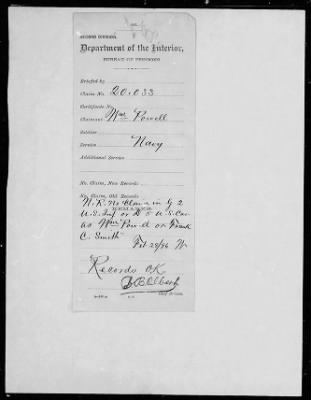 SECOND DIVISION.
Department of the Interior,
BUREAU OF PENSIONS
Briefed by
Claim No. 20,033
Certificate No.
Claimant Wm Powell
Soldier
Service Navy
Additional Service
No. Claim, New Records
No. Claim, Old Records
N.R. No Claim in G 2
U.S. Inf or D 5 U.S. Cav
as Wm Powell or Frank
C. Smith
Feb 28/96
Records OK